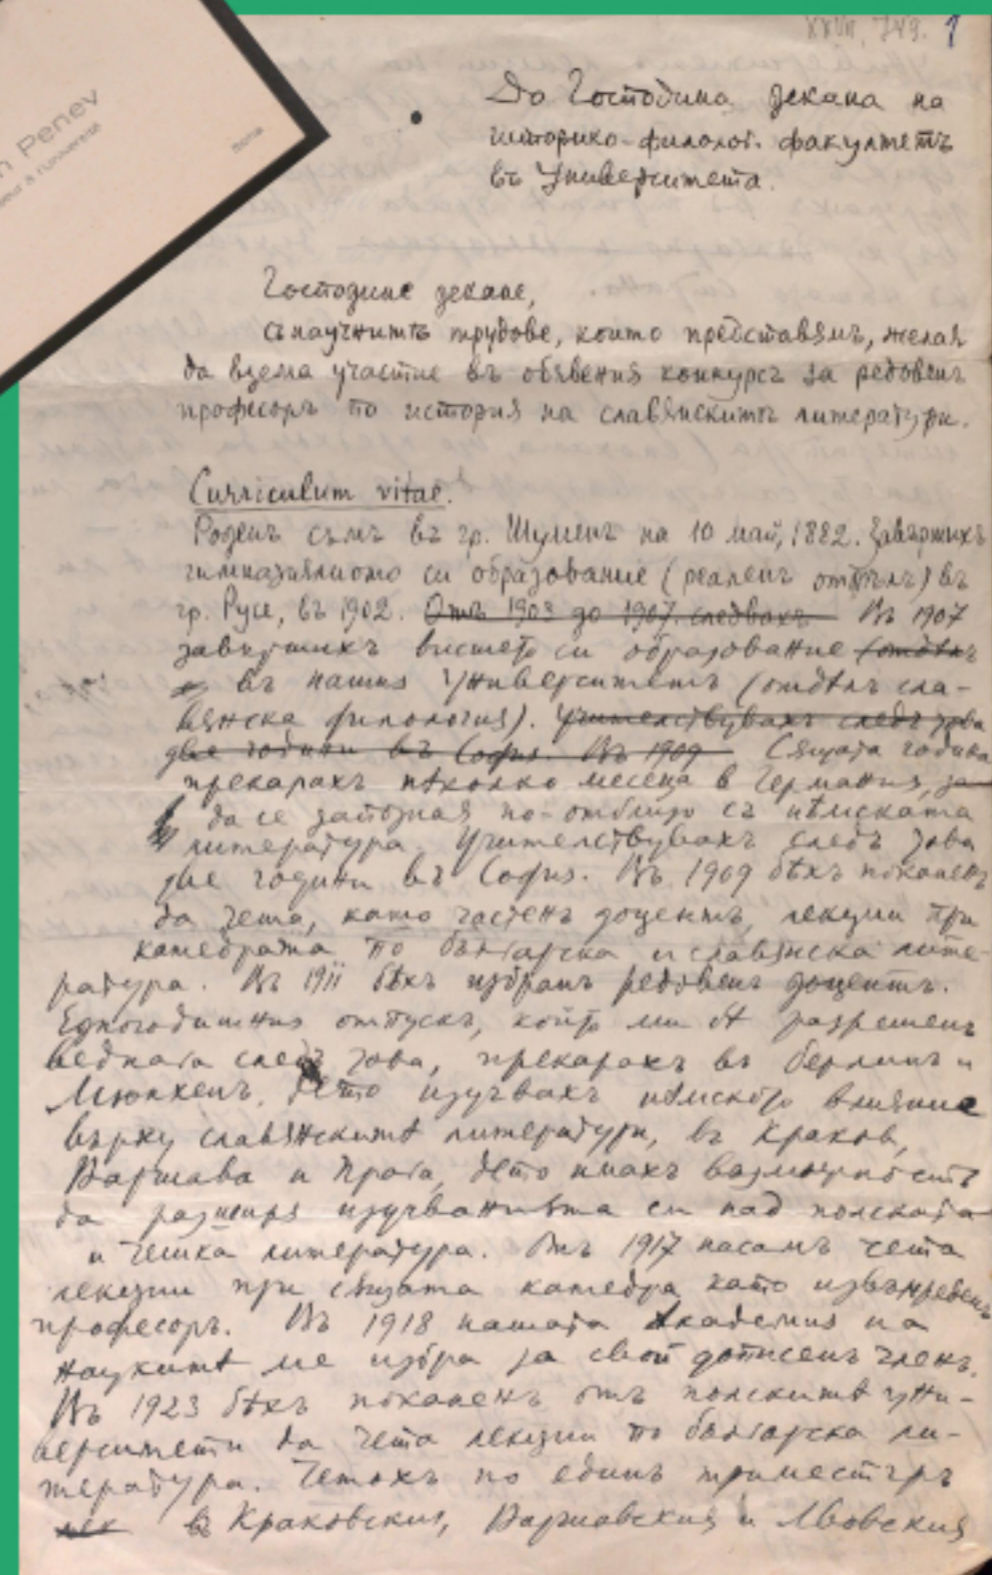 XXVII, 743. 1
n Penev
Sofia
До Господина декана на
историко-филолог. факултетъ
въ Университета.
Господине декане,
съ научнитѣ трудове, които представямъ, желая
да взема участие въ обявения конкурсъ за редовенъ
професоръ по история на славянскитѣ литератури.
Curriculum vitae.
Роденъ съмъ въ гр. Шуменъ на 10 май, 1882. Завършихъ
гимназиялното си образование (реаленъ отдѣлъ) въ
гр. Русе, въ 1902. Отъ 1903 до 1907 следвахъ Въ 1907
завършихъ висшето си образование (отдѣлъ
въ нашия Университетъ (отдѣлъ сла-
вянска филология). Учителствувахъ следъ това
две години въ София. Въ 1909 Сѫщата година
прекарахъ нѣколко месеца в Германия, за
да се запозная по-отблизо съ нѣмската
литература. Учителствувахъ следъ това
две години въ София. Въ 1909 бѣхъ поканенъ
да чета, като частенъ доцентъ, лекции при
катедрата по българска и славянска лите-
ратура. Въ 1911 бѣхъ избранъ редовенъ доцентъ.
Едногодишния отпускъ, който ми бѣ разрешенъ
веднага следъ това, прекарахъ въ Берлинъ и
Мюнхенъ, дето изучвахъ нѣмското влияние
върху славянскитѣ литератури, въ Краковъ,
Варшава и Прага, дето имахъ възможность
да разширя изучванията си над полската
и чешка литература. Отъ 1917 насамъ чета
лекции при сѫщата катедра като извънреденъ
професоръ. Въ 1918 нашата Академия на
наукитѣ ме избра за свой дописенъ членъ.
Въ 1923 бѣхъ поканенъ отъ полскитѣ уни-
верситети да чета лекции по българска ли-
тература. Четохъ по единъ триместъръ
лек въ Краковския, Варшавския и Лвовския